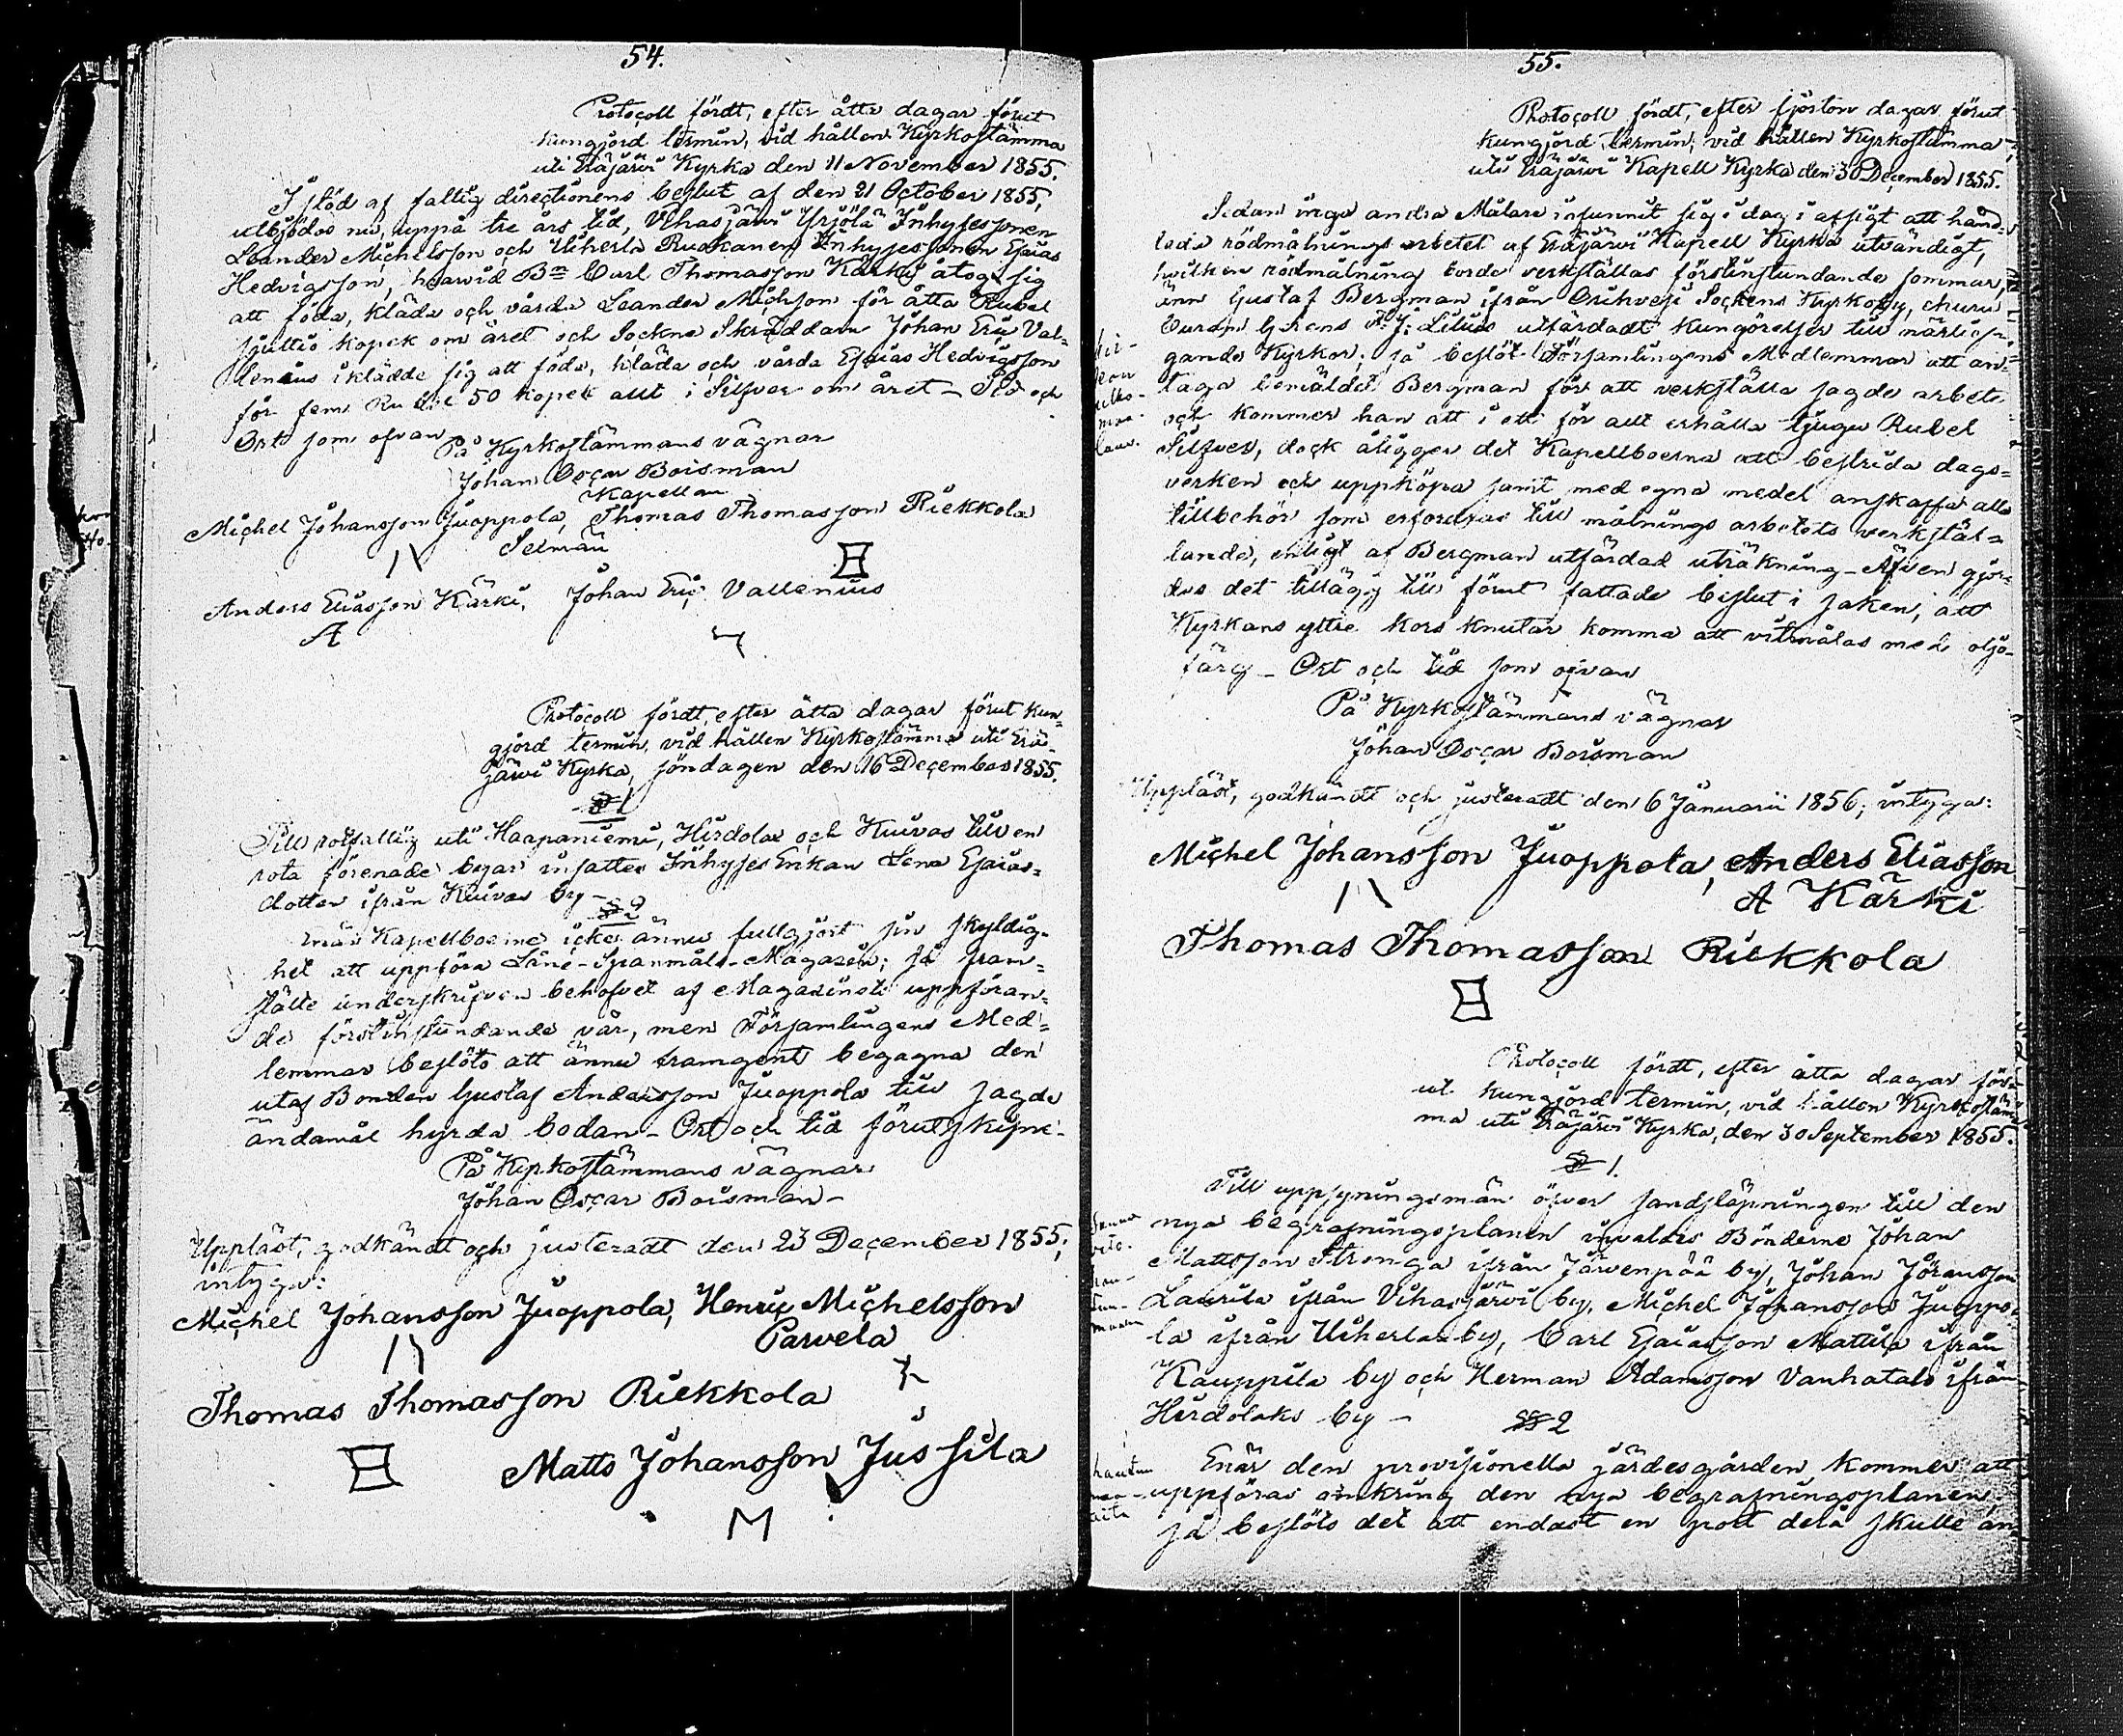 54.
Protocoll fördt, efter åtta dagar förut
kungjord termin, vid hållen Kyrkostämma
uti Eräjärvi Kyrka den 11 November 1855.
I stöd af fattig directionens beslut af den 21 October 1855,
utbjödos nu, uppå tre års tid, Vihasjärvi Yrjölä Inhysessonen
Leander Michelsson och Uiherla Ruokanen Inhysessonen Esaias
Hedvigsson, hvarvid Bn Carl Thomasson Kärki åtog sig
att föda, kläda och vårda Leander Michson för åtta Rubel
sjuttio kopek om året och Sockne Skräddaren Johan Eric Val-
lenius iklädde sig att föda, kläda och vårda Esaias Hedvigsson
för fem Rubel 50 kopek allt i Silfver om året - Tid och
Ort som ofvan
På Kyrkostämmans vägnar
Johan Oscar Boisman
Kapellan
Michel Johansson Juoppola, Thomas Thomasson Riekkola
Selmän
Anders Eliasson Kärki, Johan Eric Vallenius
A
Protocoll fördt, efter åtta dagar förut kun-
gjord termin, vid hållen Kyrkostämma uti Erä-
järvi Kyrka, söndagen den 16 December 1855.
§ 1
Till rotfattig uti Haapaniemi, Hirdola och Kuivas till en
rota förenade byar insattes Inhyses Enkan Lena Esaias-
dotter ifrån Kuivas by -
§ 2
när Kapellboerne icke ännu fullgjort sin skyldig-
het att uppföra Låne-Spanmåls-Magasin; så fram-
stälte underskrifven behofvet af Magasinets uppföran-
de förstinstundande vår, men Församlingens Med-
lemmar beslöto att ännu framgent begagna den
utaf Bonden Gustaf Andersson Juoppola till sagde
ändamål hyrda bodan - Ort och tid förutskrifne -
På Kyrkostämmans vägnar
Johan Oscar Boisman -
Uppläst, godkändt och justeradt den 23 December 1855;
intyga:
Michel Johansson Juoppola, Henric Michelsson
Parvela
Thomas Thomasson Riekkola
Matts Johansson Jussila
M
55.
Protocoll fördt, efter fjorton dagar förut
kungjord termin, vid hållen Kyrkostämma
uti Eräjärvi Kapell Kyrka den 30 December 1855.
Sedan inga andra Målare infunnit sig i dag i afsigt att hand-
leda rödmålnings arbetet af Eräjärvi Kapell Kyrka utvändigt,
hvilken rödmålning borde verkställas förstinstundande sommar,
änn Gustaf Bergman ifrån Orihvesi Sockens Kyrkoby, churu
A. J. Lilius utfärdadt kungörelser till närbelä-
gande Kyrkor; så beslöt Församlingens Medlemmar att an-
taga bemälde Bergman för att verkställa sagde arbete
och kommer han att i ett för allt erhålla tjugu Rubel
Silfver, dock åligger det Kapellboerna att bestrida dags-
verken och uppköpa samt med egna medel anskaffa alla
tillbehör som erfordras till målnings arbetets verkstäl-
lande, enligt af Bergman utfärdad uträkning - Äfven gjor-
des det tillägg till förut fattade beslut i saken, att
Kyrkans yttre kors knutar komma att vitmålas med olje-
färg - Ort och tid som ofvan
På Kyrkostämmans vägnar
Johan Oscar Boisman
Uppläst, godkändt och justeradt den 6 Januarii 1856; intyga:
Michel Johansson Juoppola, Anders Eliasson
A Kärki
Thomas Thomasson Riekkola
Protocoll fördt, efter åtta dagar för-
ut kungjord termin, vid hållen Kyrkostäm-
ma uti Eräjärvi Kyrka, den 30 September 1855.
§ 1.
Till uppsyningsmän öfver sandsläpningen till den
nya begrafningsplanen invaldes Bönderne Johan
Mattsson Stronga ifrån Järvenpää by, Johan Jöransson
Laurila ifrån Vihasjärvi by, Michel Johansson Juoppo-
la ifrån Uiherla by, Carl Esaiasson Mattila ifrån
Kauppila by och Herman Adamsson Vanhatalo ifrån
Hirdolaks by -
§ 2
Enär den provisionella gärdesgården kommer att
uppföras omkring den nya begrafningsplanen,
så beslöts det att endast en port derå skulle an